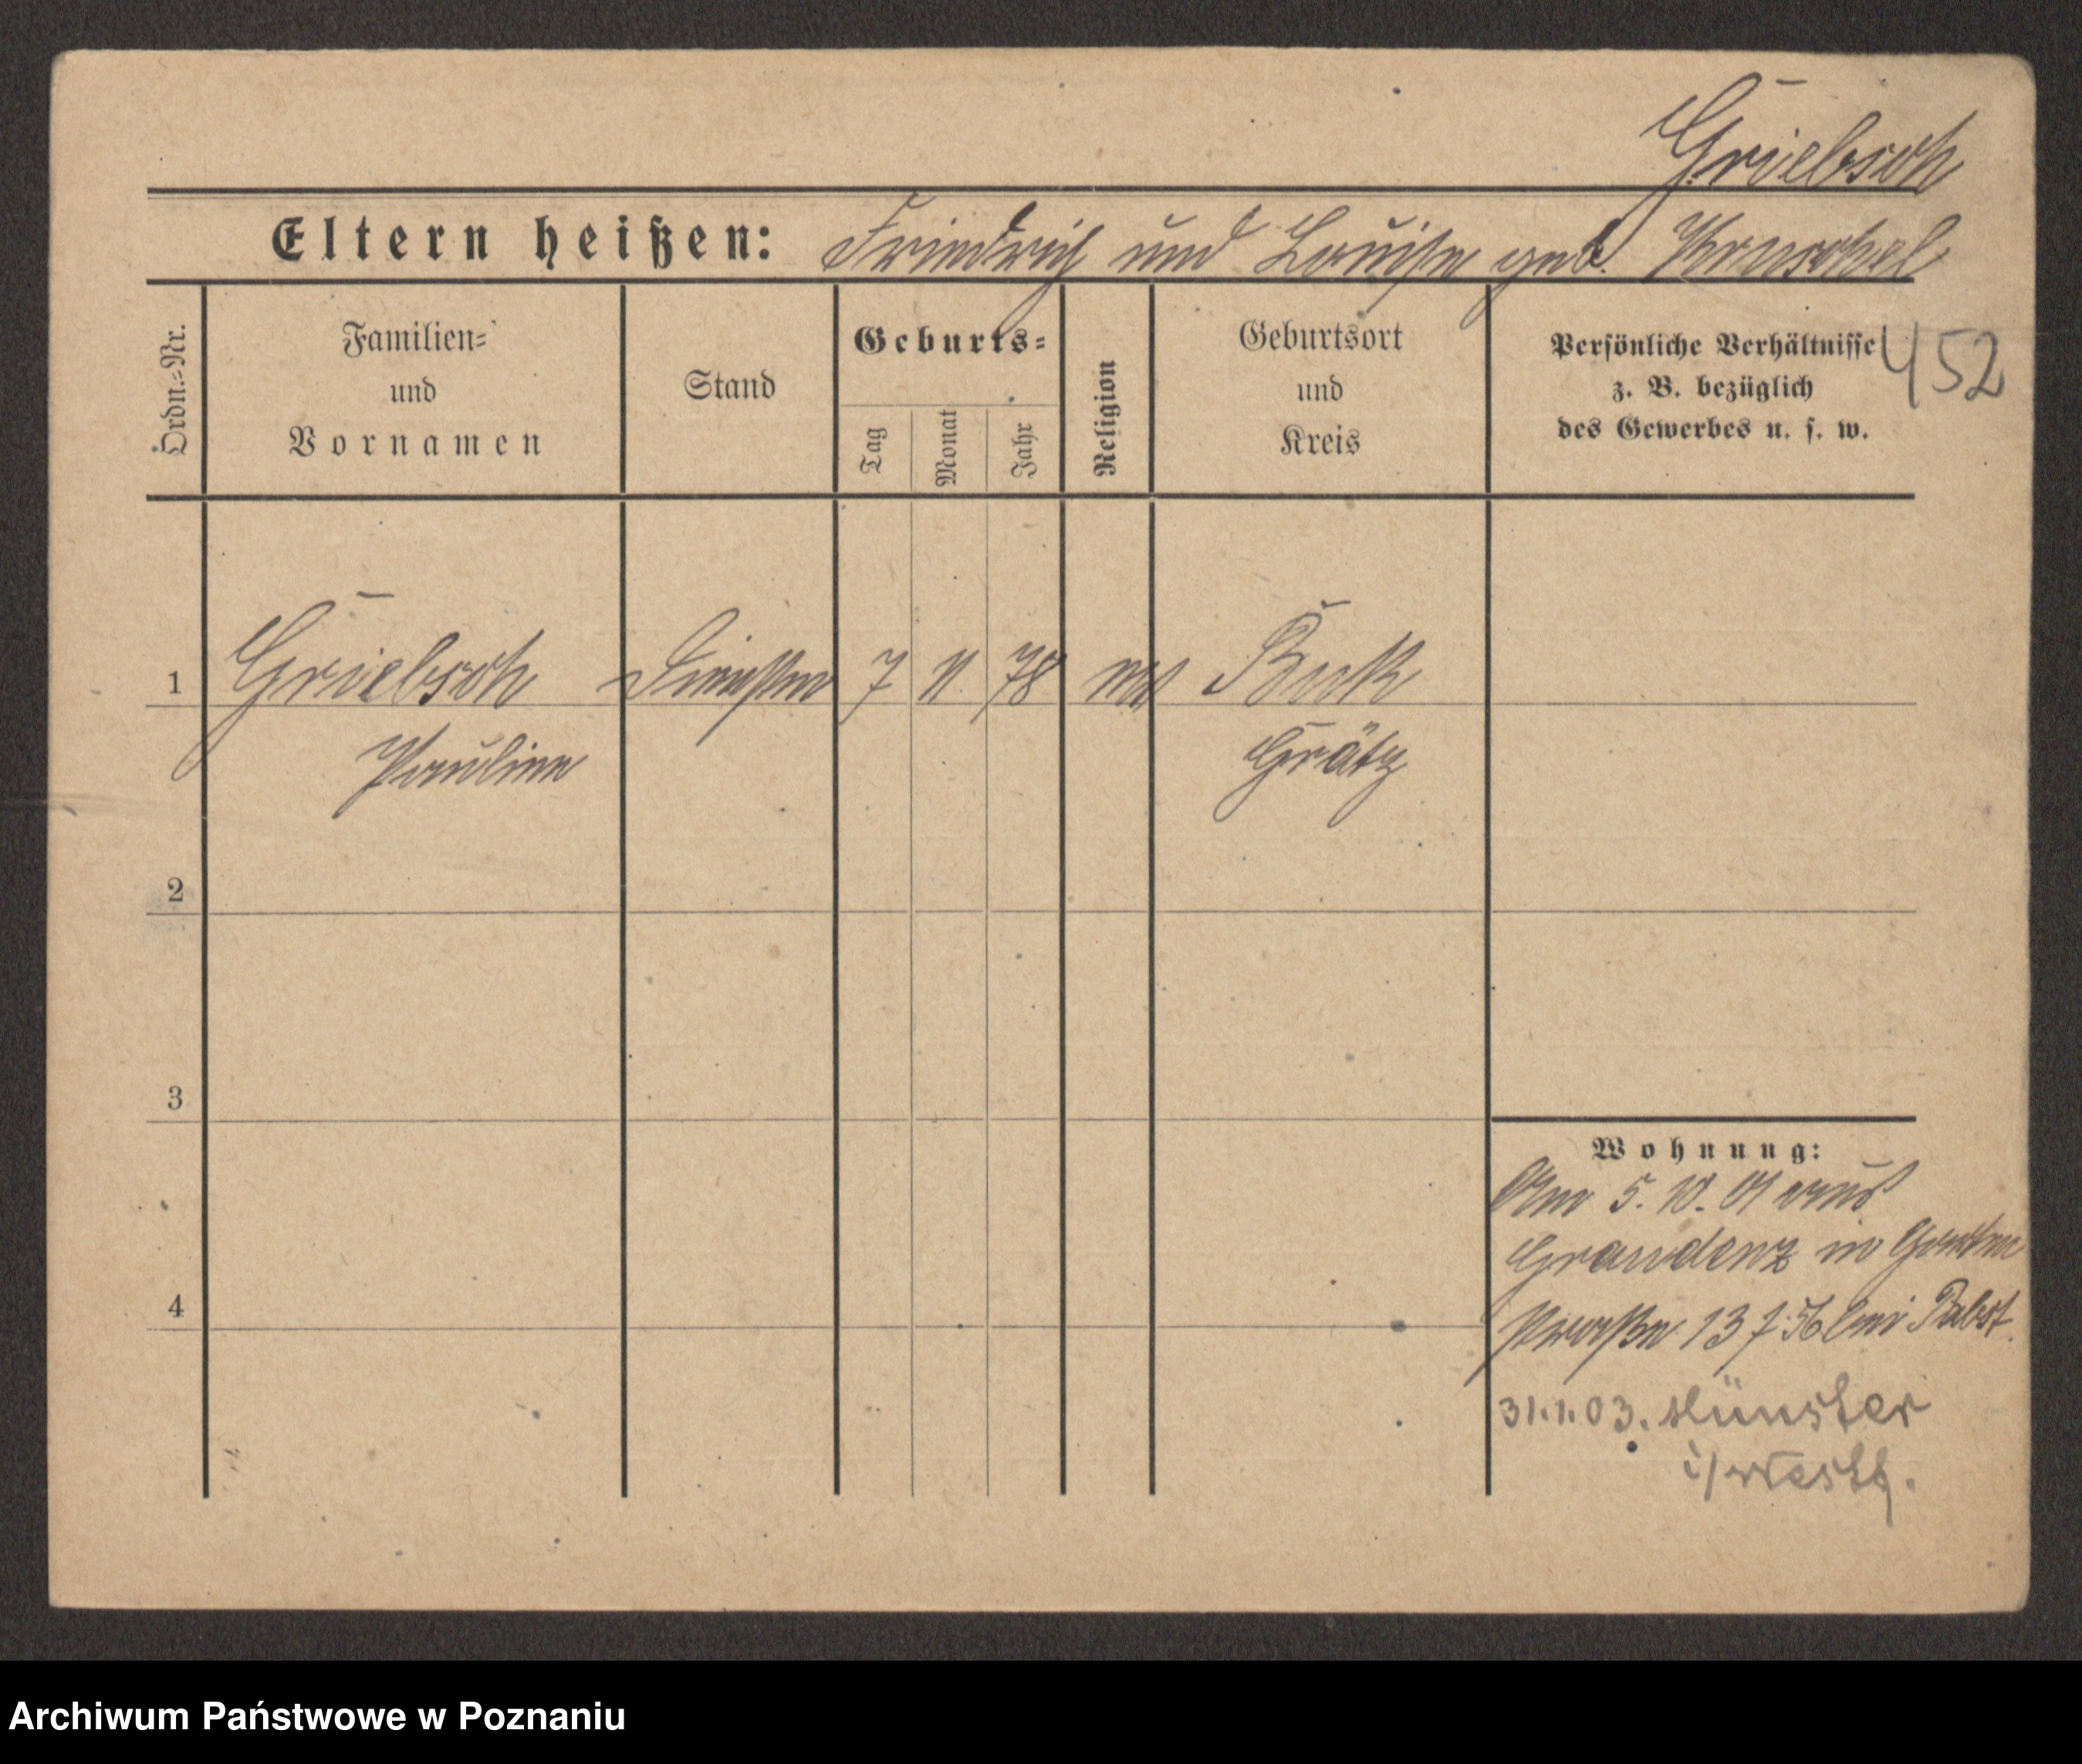 Griebsch
Eltern heißen: Friedrich und Louise geb.
Ordn.=Nr.
Familien=
und
Vornamen
Stand
Geburts=
Tag
Monat
Jahr
Religion
Geburtsort
und
Kreis
Persönliche Verhältnisse
z. B. bezüglich
des Gewerbes u. s. w.
452
1 Griebsch 7 11 78 Buk
Pauline Grätz
2
3
4
Wohnung:
Am 5. 10. 01 aus
Graudenz in Garten
straße 13 bei Pabst.
31.1.03. Münster
i/Westf.
Archiwum Państwowe w Poznaniu